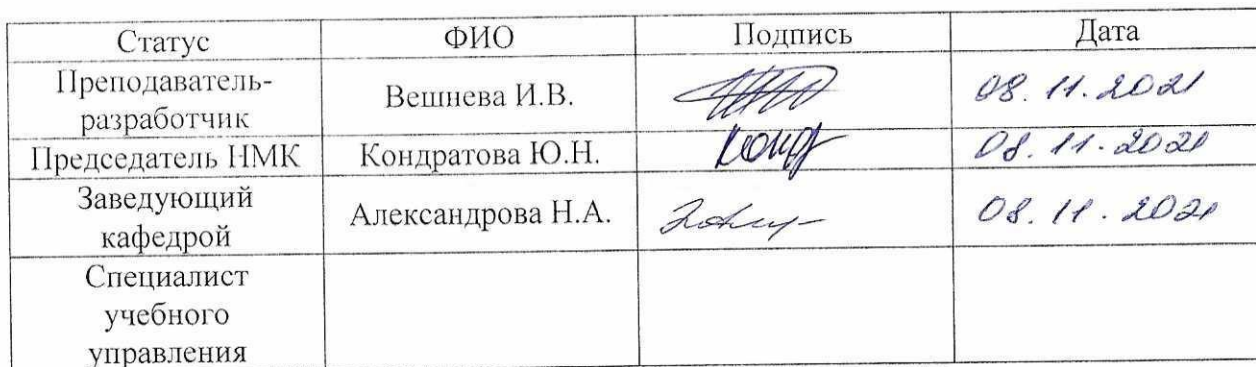 Статус ФИО Подпись Дата
Преподаватель-
разработчик Вешнева И.В. 08.11.2021
Председатель НМК Кондратова Ю.Н. 08.11.2021
Заведующий
кафедрой Александрова Н.А. 08.11.2021
Специалист
учебного
управления